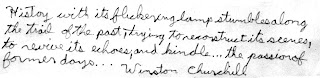 "History with its flickering lamp stumbles along
the trail of the past, trying to reconstruct its scenes,
to revive its echoes, and kindle... the passion of
former days... Winston Churchill